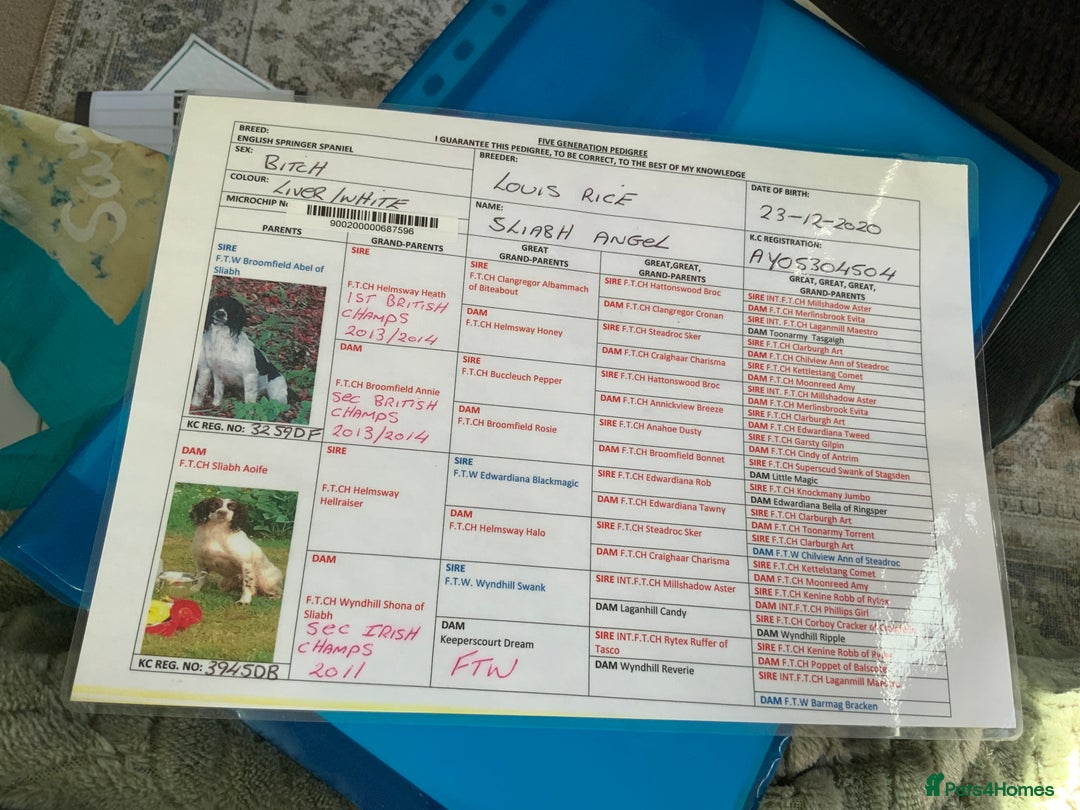 FIVE GENERATION PEDIGREE
I GUARANTEE THIS PEDIGREE, TO BE CORRECT, TO THE BEST OF MY KNOWLEDGE
BREED:
ENGLISH SPRINGER SPANIEL
SEX:
BITCH
COLOUR:
LIVER/WHITE
MICROCHIP
900200000687596
BREEDER:
LOUIS RICE
NAME:
SLIABH ANGEL
DATE OF BIRTH:
23-12-2020
K.C REGISTRATION:
AY05304504
PARENTS
SIRE
F.T.W Broomfield Abel of
Sliabh
KC REG. NO: 3259DF
DAM
F.T.CH Sliabh Aoife
KC REG. NO: 3945DB
GRAND-PARENTS
SIRE
F.T.CH Helmsway Heath
1ST BRITISH
CHAMPS
2013/2014
DAM
F.T.CH Broomfield Annie
SEC BRITISH
CHAMPS
2013/2014
SIRE
F.T.CH Helmsway
Hellraiser
DAM
F.T.CH Wyndhill Shona of
Sliabh
SEC IRISH
CHAMPS
2011
GREAT
GRAND-PARENTS
SIRE
F.T.CH Clangregor Albammach
of Biteabout
DAM
F.T.CH Helmsway Honey
SIRE
F.T.CH Buccleuch Pepper
DAM
F.T.CH Broomfield Rosie
SIRE
F.T.W Edwardiana Blackmagic
DAM
F.T.CH Helmsway Halo
SIRE
F.T.W. Wyndhill Swank
DAM
Keeperscourt Dream
FTW
GREAT,GREAT,
GRAND-PARENTS
SIRE F.T.CH Hattonswood Broc
DAM F.T.CH Clangregor Cronan
SIRE F.T.CH Steadroc Sker
DAM F.T.CH Craighaar Charisma
SIRE F.T.CH Hattonswood Broc
DAM F.T.CH Annickview Breeze
SIRE F.T.CH Anahoe Dusty
DAM F.T.CH Broomfield Bonnet
SIRE F.T.CH Edwardiana Rob
DAM F.T.CH Edwardiana Tawny
SIRE F.T.CH Steadroc Sker
DAM F.T.CH Craighaar Charisma
SIRE INT.F.T.CH Millshadow Aster
DAM Laganhill Candy
SIRE INT.F.T.CH Rytex Ruffer of
Tasco
DAM Wyndhill Reverie
GREAT, GREAT, GREAT,
GRAND-PARENTS
SIRE INT.F.T.CH Millshadow Aster
DAM F.T.CH Merlinsbrook Evita
SIRE INT. F.T.CH Laganmill Maestro
DAM Toonarmy Tasgaigh
SIRE F.T.CH Clarburgh Art
DAM F.T.CH Chilview Ann of Steadroc
SIRE F.T.CH Kettlestang Comet
DAM F.T.CH Moonreed Amy
SIRE INT. F.T.CH Millshadow Aster
DAM F.T.CH Merlinsbrook Evita
SIRE F.T.CH Clarburgh Art
DAM F.T.CH Edwardiana Tweed
SIRE F.T.CH Garsty Gilpin
DAM F.T.CH Cindy of Antrim
SIRE F.T.CH Superscud Swank of Stagsden
DAM Little Magic
SIRE F.T.CH Knockmany Jumbo
DAM Edwardiana Bella of Ringsper
SIRE F.T.CH Clarburgh Art
DAM F.T.CH Toonarmy Torrent
SIRE F.T.CH Clarburgh Art
DAM F.T.W Chilview Ann of Steadroc
SIRE F.T.CH Kettelstang Comet
DAM F.T.CH Moonreed Amy
SIRE F.T.CH Kenine Robb of Rytex
DAM INT.F.T.CH Phillips Girl
SIRE F.T.CH Corboy Cracker of
DAM Wyndhill Ripple
SIRE F.T.CH Kenine Robb of
DAM F.T.CH Poppet of
SIRE INT.F.T.CH Laganmill Maestro
DAM F.T.W Barmag Bracken
Pets4Homes